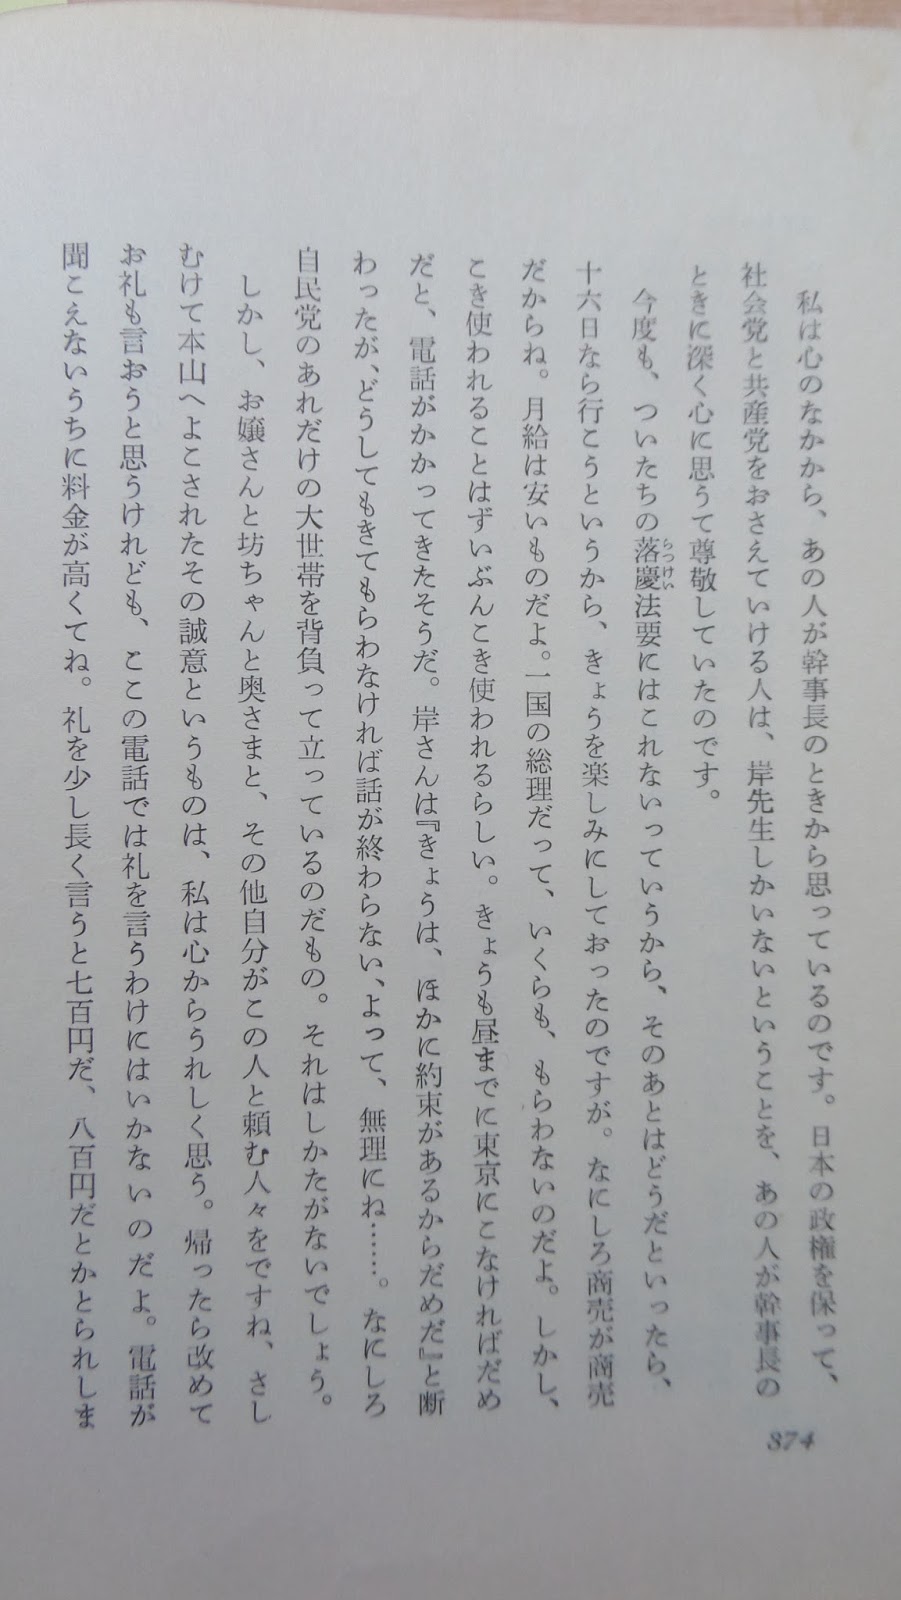 私は心のなかから、あの人が幹事長のときから思っているのです。日本の政権を保って、
社会党と共産党をおさえていける人は、岸先生しかいないということを、あの人が幹事長の
ときに深く心に思うて尊敬していたのです。
今度も、ついたちの落慶法要にはこれないっていうから、そのあとはどうだといったら、
らっけい
十六日なら行こうというから、きょうを楽しみにしておったのですが。なにしろ商売が商売
だからね。月給は安いものだよ。一国の総理だって、いくらも、もらわないのだよ。しかし、
こき使われることはずいぶんこき使われるらしい。きょうも昼までに東京にこなければだめ
だと、電話がかかってきたそうだ。岸さんは『きょうは、ほかに約束があるからだめだ』と断
わったが、どうしてもきてもらわなければ話が終わらない、よって、無理にね……。なにしろ
自民党のあれだけの大世帯を背負って立っているのだもの。それはしかたがないでしょう。
しかし、お嬢さんと坊ちゃんと奥さまと、その他自分がこの人と頼む人々をですね、さし
むけて本山へよこされたその誠意というものは、私は心からうれしく思う。帰ったら改めて
お礼も言おうと思うけれども、ここの電話では礼を言うわけにはいかないのだよ。電話が
聞こえないうちに料金が高くてね。礼を少し長く言うと七百円だ、八百円だとかとられしま
374